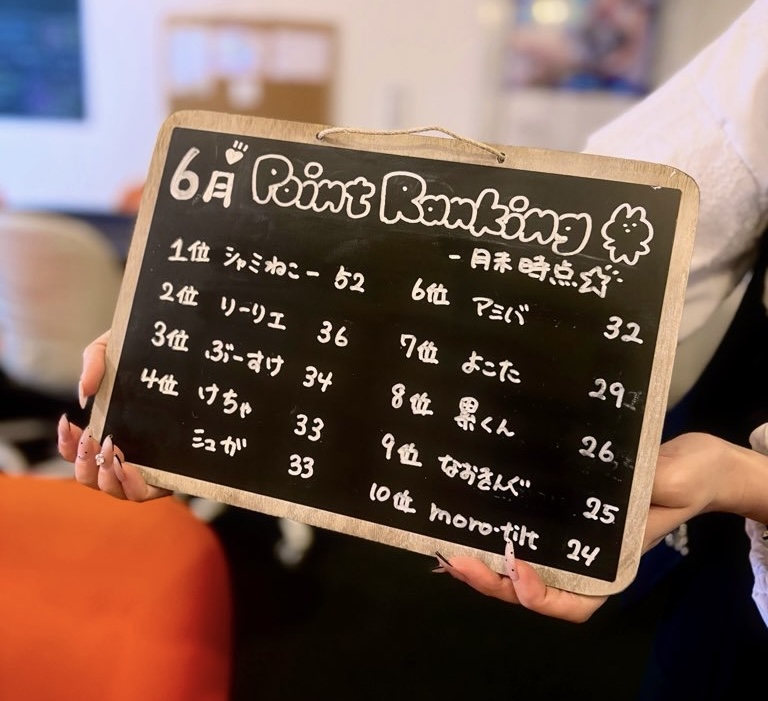 6月 Point Ranking
-月末時点☆
1位 シャミねこー 52
2位 リーリエ 36
3位 ぶーすけ 34
4位 けちゃ 33
ミュが 33
6位 アミバ 32
7位 よこた 29
8位 累くん 26
9位 なおきんぐ 25
10位 moro-tilt 24